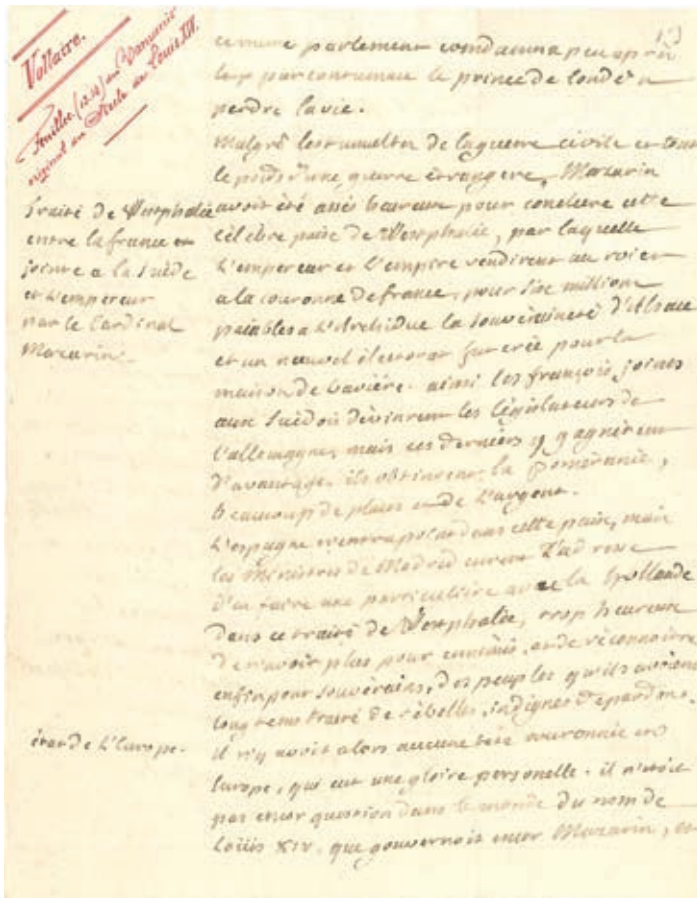 Voltaire.
Feuillet (12-13) du Manuscrit
original du Siècle de Louis XIV.
13
ce même parlement condamna peu après
par contumace le prince de Condé a
perdre la vie.
Malgré les tumultes de la guerre civile et tout
le poids d'une guerre étrangere, Mazarin
avoit été assés heureux pour conclure cette
célebre paix de Westphalie, par laquelle
L'empereur et L'empire vendirent au roi et
a la couronne de france, pour six millions
paiables a L'Archiduc la souveraineté d'Alsace
et un nouvel électorat fut créé pour la
maison de baviére. ainsi les françois, joints
aux Suédois devinrent les législateurs de
l'allemagne, mais ces derniers y gagnérent
d'avantage. ils obtinrent la Poméranie,
beaucoup de places et de L'argent.
L'espagne n'entra point dans cette paix, mais
les Ministres de Madrid eurent L'adresse
d'en faire une particuliere avec la hollande
dans ce traité de Westphalie, trop heureux
de n'avoir plus pour ennemis, et de réconnoitre
enfin pour souverains, des peuples qu'ils avoient
longtems traité de rébelles, indignes de pardon.
il n'y avoit alors aucune tête couronnée en
Europe, qui eut une gloire personelle. il n'étoit
pas encor question dans le monde du nom de
Loüis XIV. que gouvernoit encor Mazarin, et
Traité de Westphalie
entre la france et
jointe a la Suède
et L'empereur
par le Cardinal
Mazarin.
état de L'Europe.